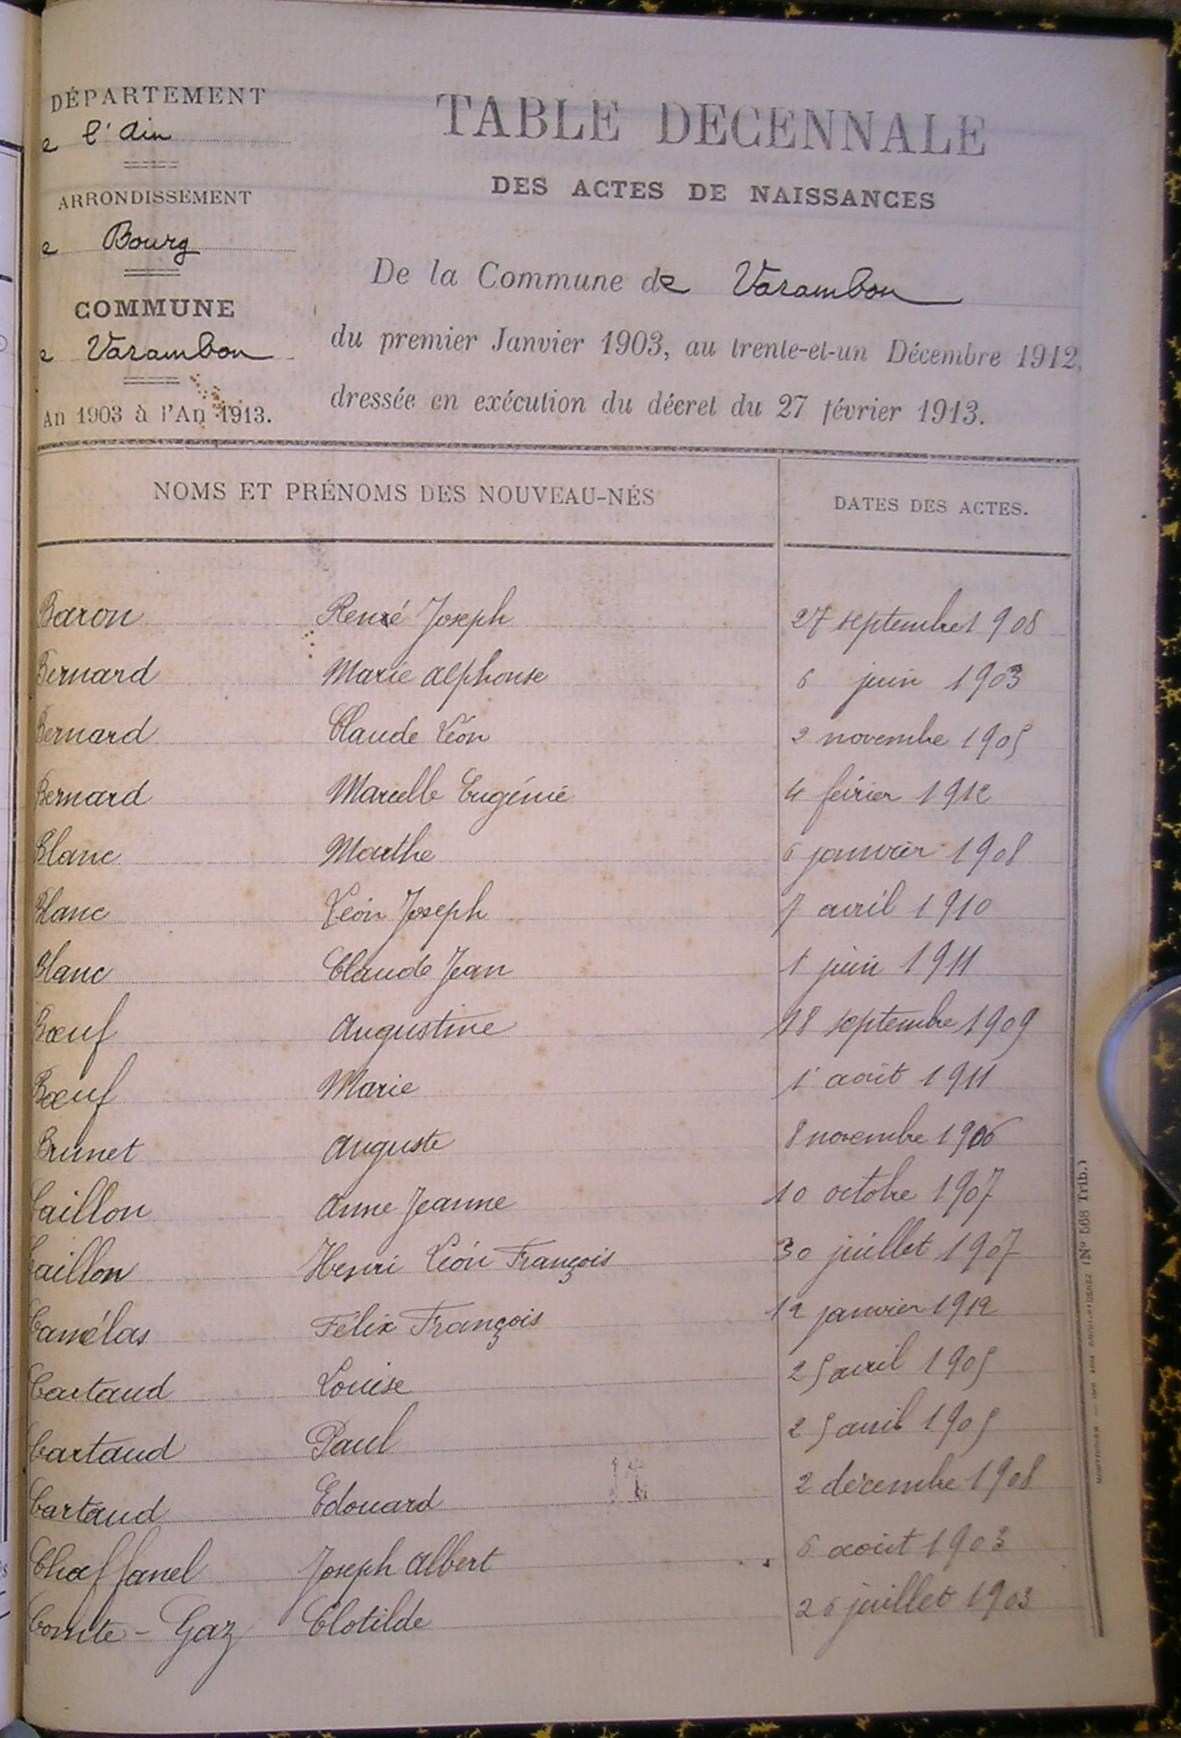 DÉPARTEMENT
e l'Ain
ARRONDISSEMENT
e Bourg
COMMUNE
e Varambon
An 1903 à l'An 1913.
TABLE DECENNALE
DES ACTES DE NAISSANCES
De la Commune de Varambon
du premier Janvier 1903, au trente-et-un Décembre 1912,
dressée en exécution du décret du 27 février 1913.
NOMS ET PRÉNOMS DES NOUVEAU-NÉS DATES DES ACTES.
Baron René Joseph 27 septembre 1908
Bernard Marie Alphonse 6 juin 1903
Bernard Claude Léon 2 novembre 1905
Bernard Marcelle Eugénie 4 février 1912
Blanc Marthe 6 janvier 1908
Blanc Léon Joseph 7 avril 1910
Blanc Claude Jean 1 juin 1911
Bœuf Augustine 18 septembre 1909
Bœuf Marie 1 août 1911
Brunet Auguste 8 novembre 1906
Caillon Anne Jeanne 10 octobre 1907
Caillon Henri Léon François 30 juillet 1907
Camélas Félix François 12 janvier 1912
Cartaud Louise 25 avril 1905
Cartaud Paul 25 avril 1905
Cartaud Edouard 2 décembre 1908
Chaffanel Joseph Albert 6 août 1903
Comte-Gaz Clotilde 26 juillet 1903
(N° 568 Trib.)